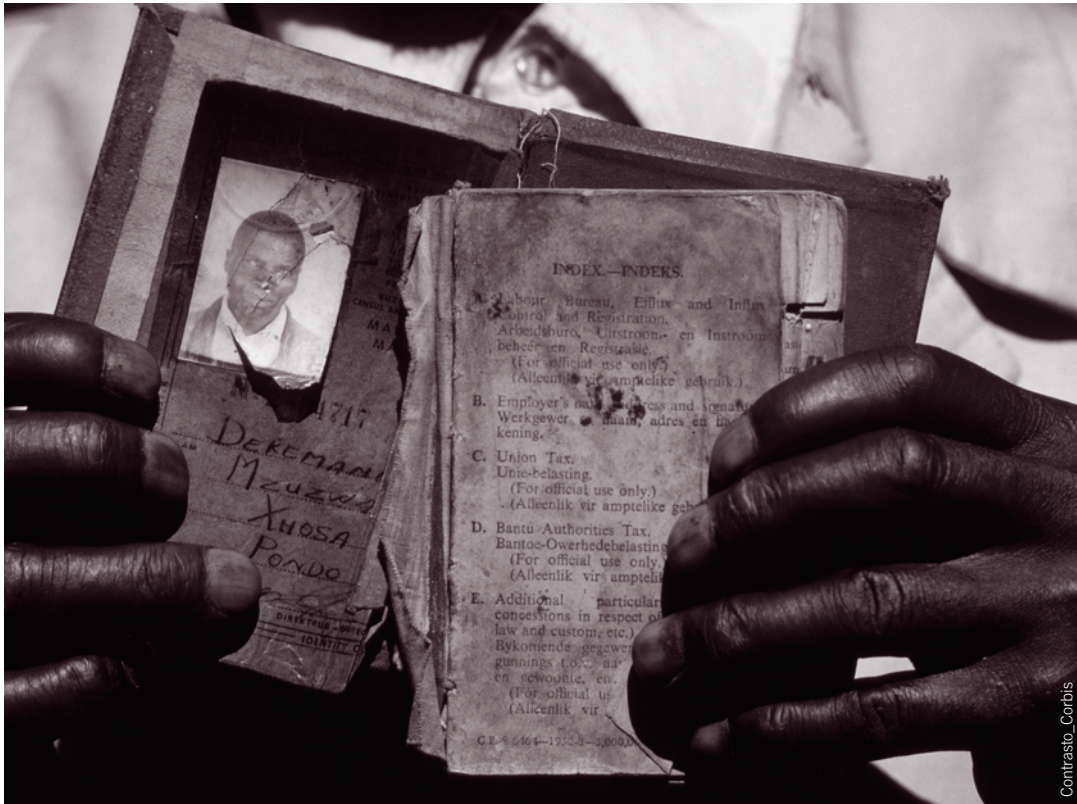 4717
DEREMAN
MZUZWA
XHOSA
PONDO
IDENTITY
INDEX.—INDEKS.
A. Labour Bureau, Efflux and Influx
Control and Registration.
Arbeidsburo, Uitstroom- en Instroom
beheer en Registrasie.
(For official use only.)
(Alleenlik vir amptelike gebruik.)
B. Employer's and signatu
Werkgewer naam, adres en ha
kening.
C. Union Tax.
Unie-belasting.
(For official use only.)
(Alleenlik vir amptelike geb
D. Bantu Authorities Tax.
Bantoe-Owerhedebelasting
(For official use only.
(Alleenlik vir amptelik
E. Additional particular
concessions in respect of
law and custom, etc.)
Bykomende gegewen
gunnings t.o.v. na
en gewoonte, en
(For official u
(Alleenlik vir
Contrasto_Corbis